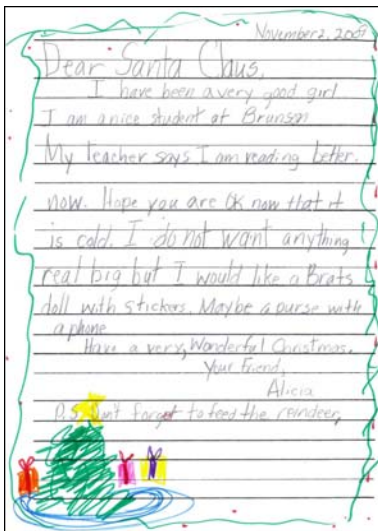 November 2, 2007
Dear Santa Claus,
I have been a very good girl
I am a nice student at Brunson
My teacher says I am reading better.
now. Hope you are Ok now that it
is cold. I do not want anything
real big but I would like a Brats
doll with stickers. Maybe a purse with
a phone
Have a very, Wonderful Christmas.
Your Friend,
Alicia
P.S. Don't forget to feed the reindeer,